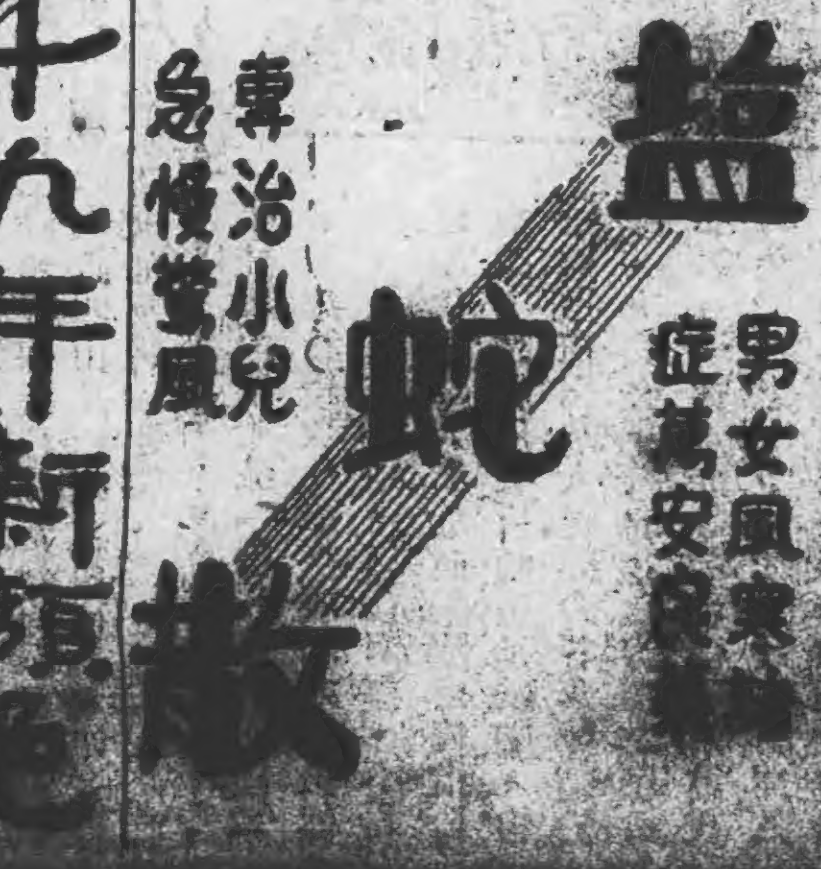 塩蛇散
男女風寒
症萬安良
專治小兒
急慢驚風
九年新